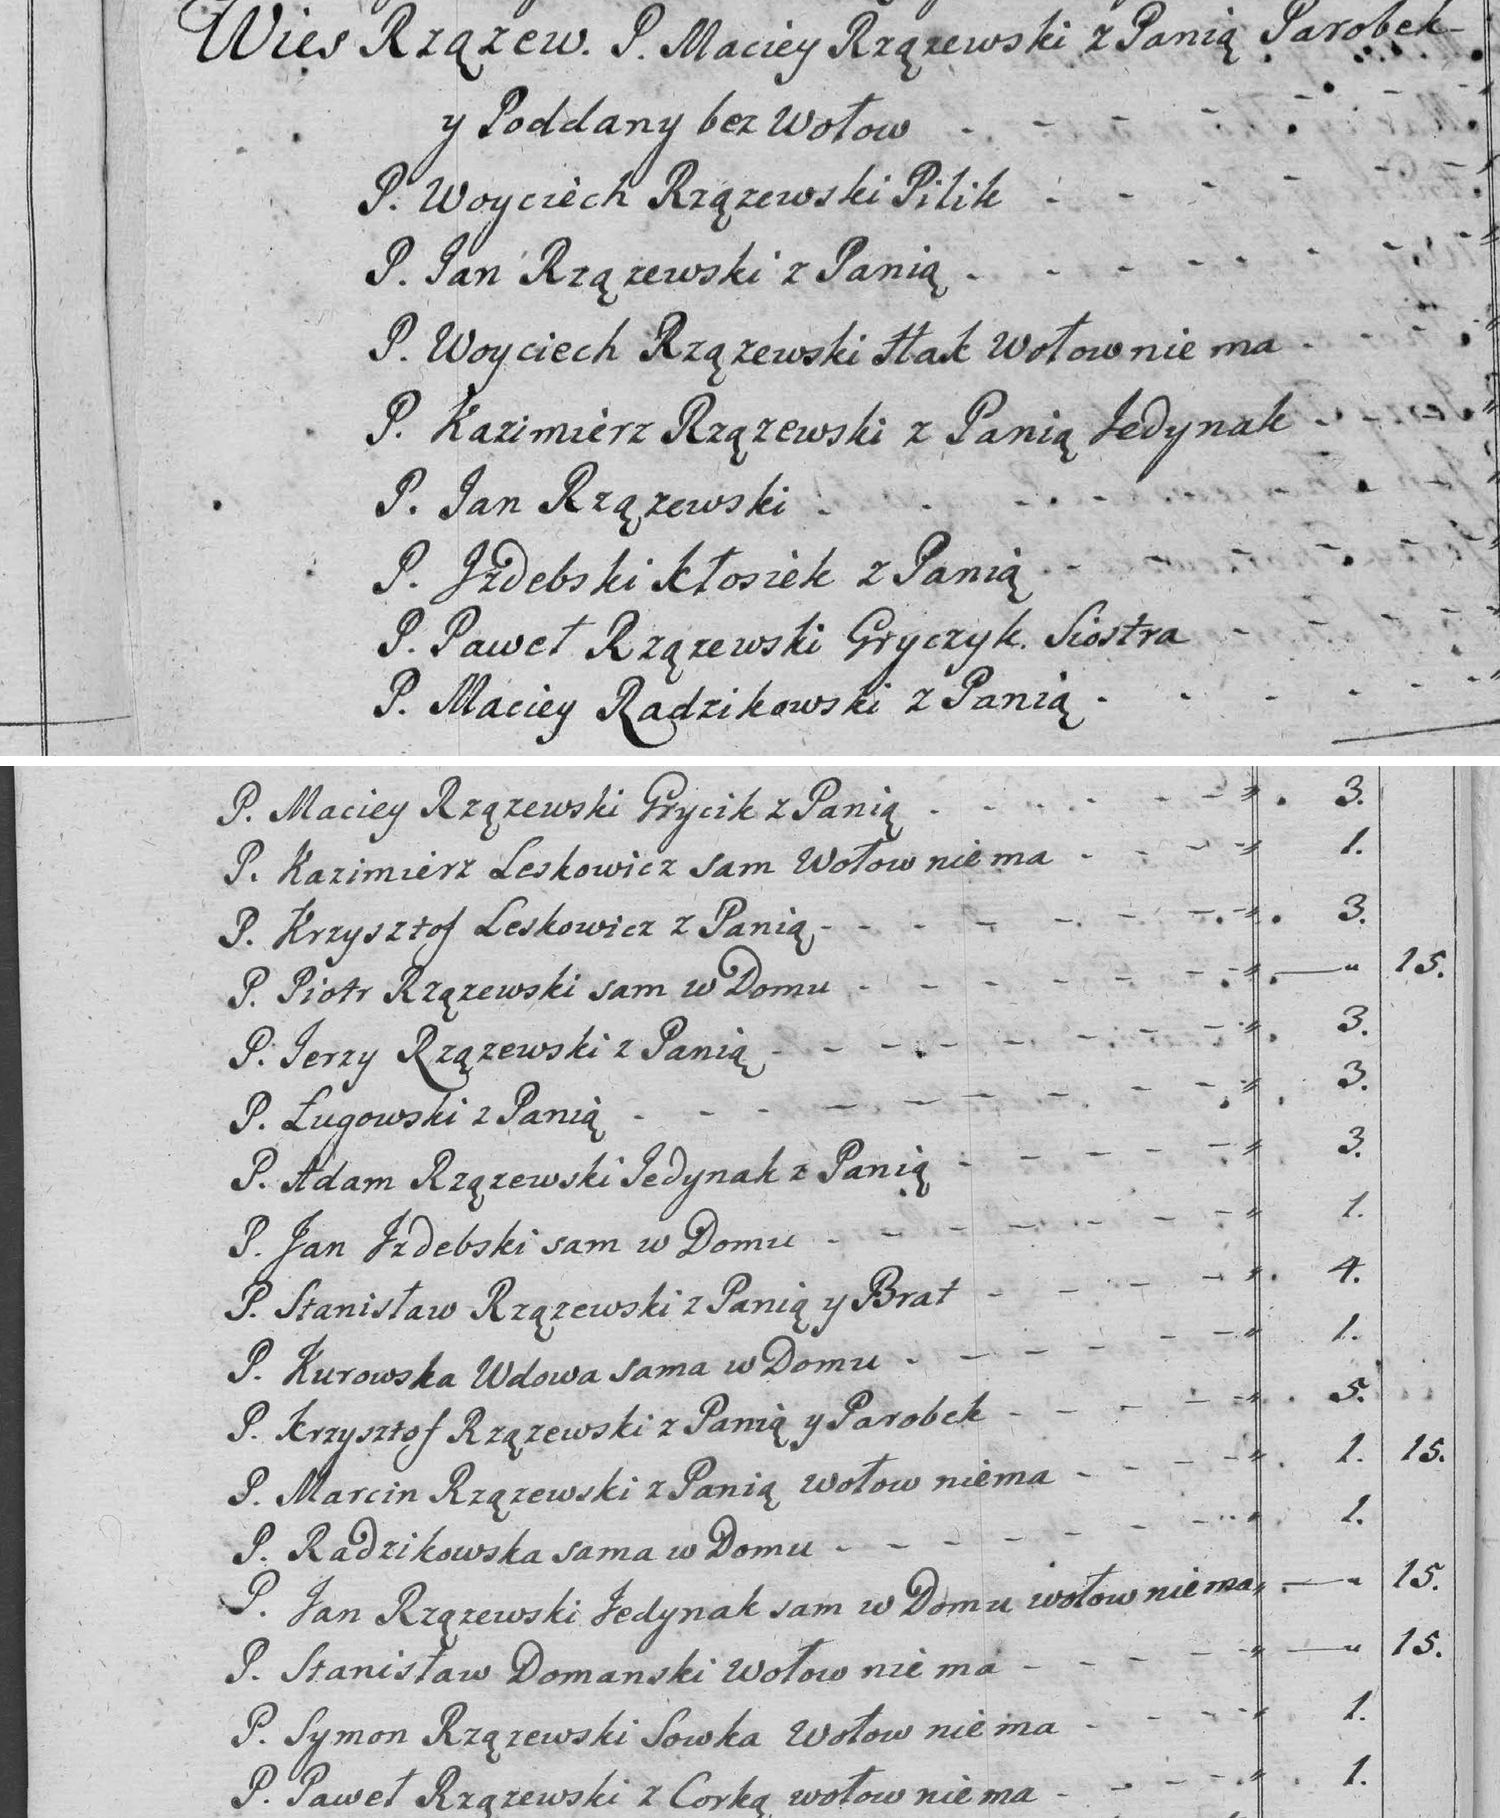 Wies Rzązew. P. Maciey Rzązewski z Panią Parobek
y Poddany bez Wołow
P. Woyciech Rzązewski Pilik
P. Jan Rzązewski z Panią
P. Woyciech Rzązewski Wołow nie ma
P. Kazimierz Rzązewski z Panią Jedynak
P. Jan Rzązewski
P. Jzdebski Kłosiek z Panią
P. Paweł Rzązewski Gryczyk. Siostra
P. Maciey Radzikowski z Panią
P. Maciey Rzązewski Grycik z Panią 3.
P. Kazimierz Leskowicz sam Wołow niema 1.
P. Krzysztof Leskowicz z Panią 3.
P. Piotr Rzązewski sam w Domu — " 15.
P. Jerzy Rzązewski z Panią 3.
P. Ługowski z Panią 3.
P. Adam Rzązewski Jedynak z Panią 3.
P. Jan Jzdebski sam w Domu 1.
P. Stanisław Rzązewski z Panią y Brat 4.
P. Kurowska Wdowa sama w Domu 1.
P. Krzysztof Rzązewski z Panią y Parobek 5.
P. Marcin Rzązewski z Panią wołow niema 1. 15.
P. Radzikowska sama w Domu 1.
P. Jan Rzązewski Jedynak sam w Domu wołow niema — " 15.
P. Stanisław Domanski Wołow nie ma — " 15.
P. Symon Rzązewski Sowka Wołow nie ma 1.
P. Paweł Rzązewski z Corką wołow nie ma 1.